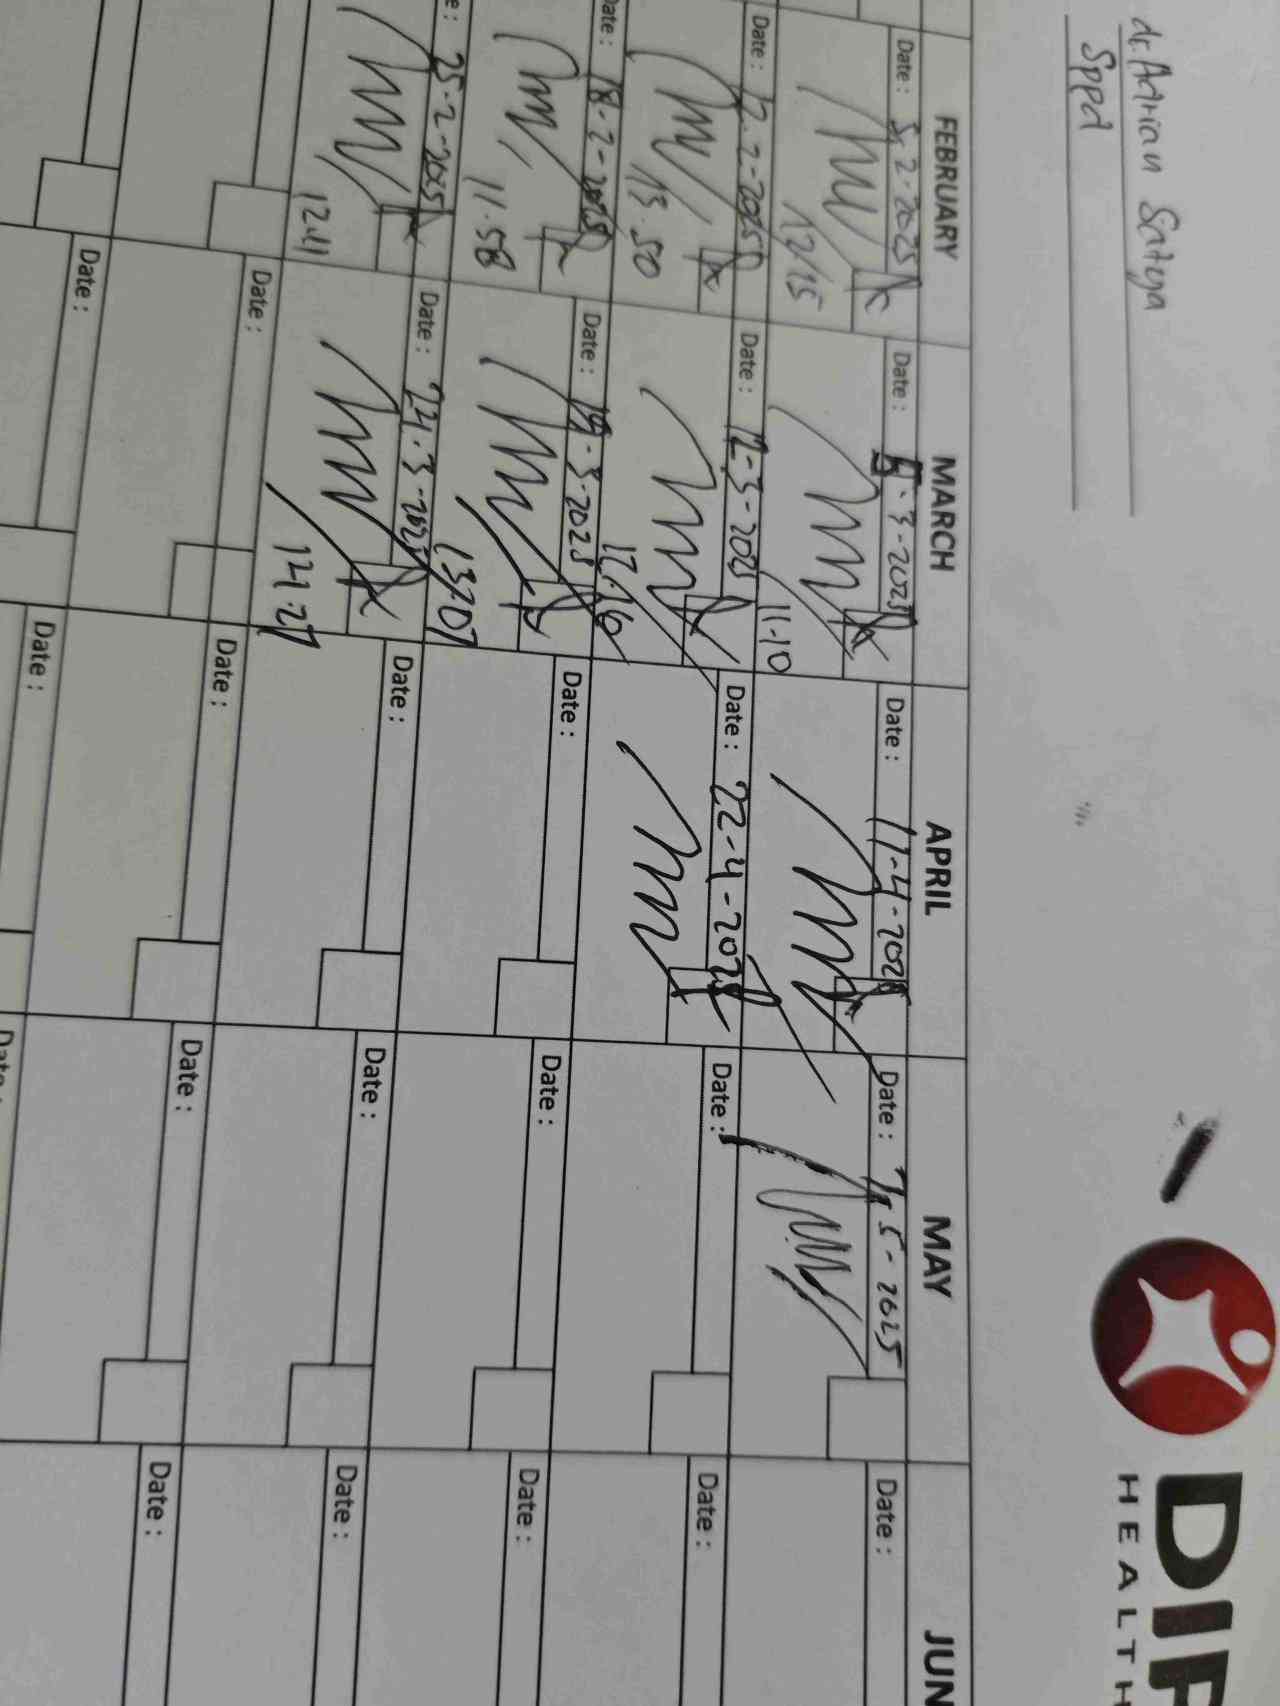 dr. Adrian Satya
Sppd
DIP
HEALTH
FEBRUARY MARCH APRIL MAY JUN
Date : 5-2-2025 Date : 5-3-2025 Date : 11-4-2025 Date : 7-5-2025 Date :
12/15 11-10
Date : 12-2-2025 Date : 12-3-2025 Date : 22-4-2025 Date : Date :
13.50 12.16
Date : 18-2-2025 Date : 19-3-2025 Date : Date : Date :
11.58 13.07
e : 25-2-2025 Date : 24-3-2025 Date : Date : Date :
12.11 14.27
Date : Date : Date : Date :
Date : Date : Date